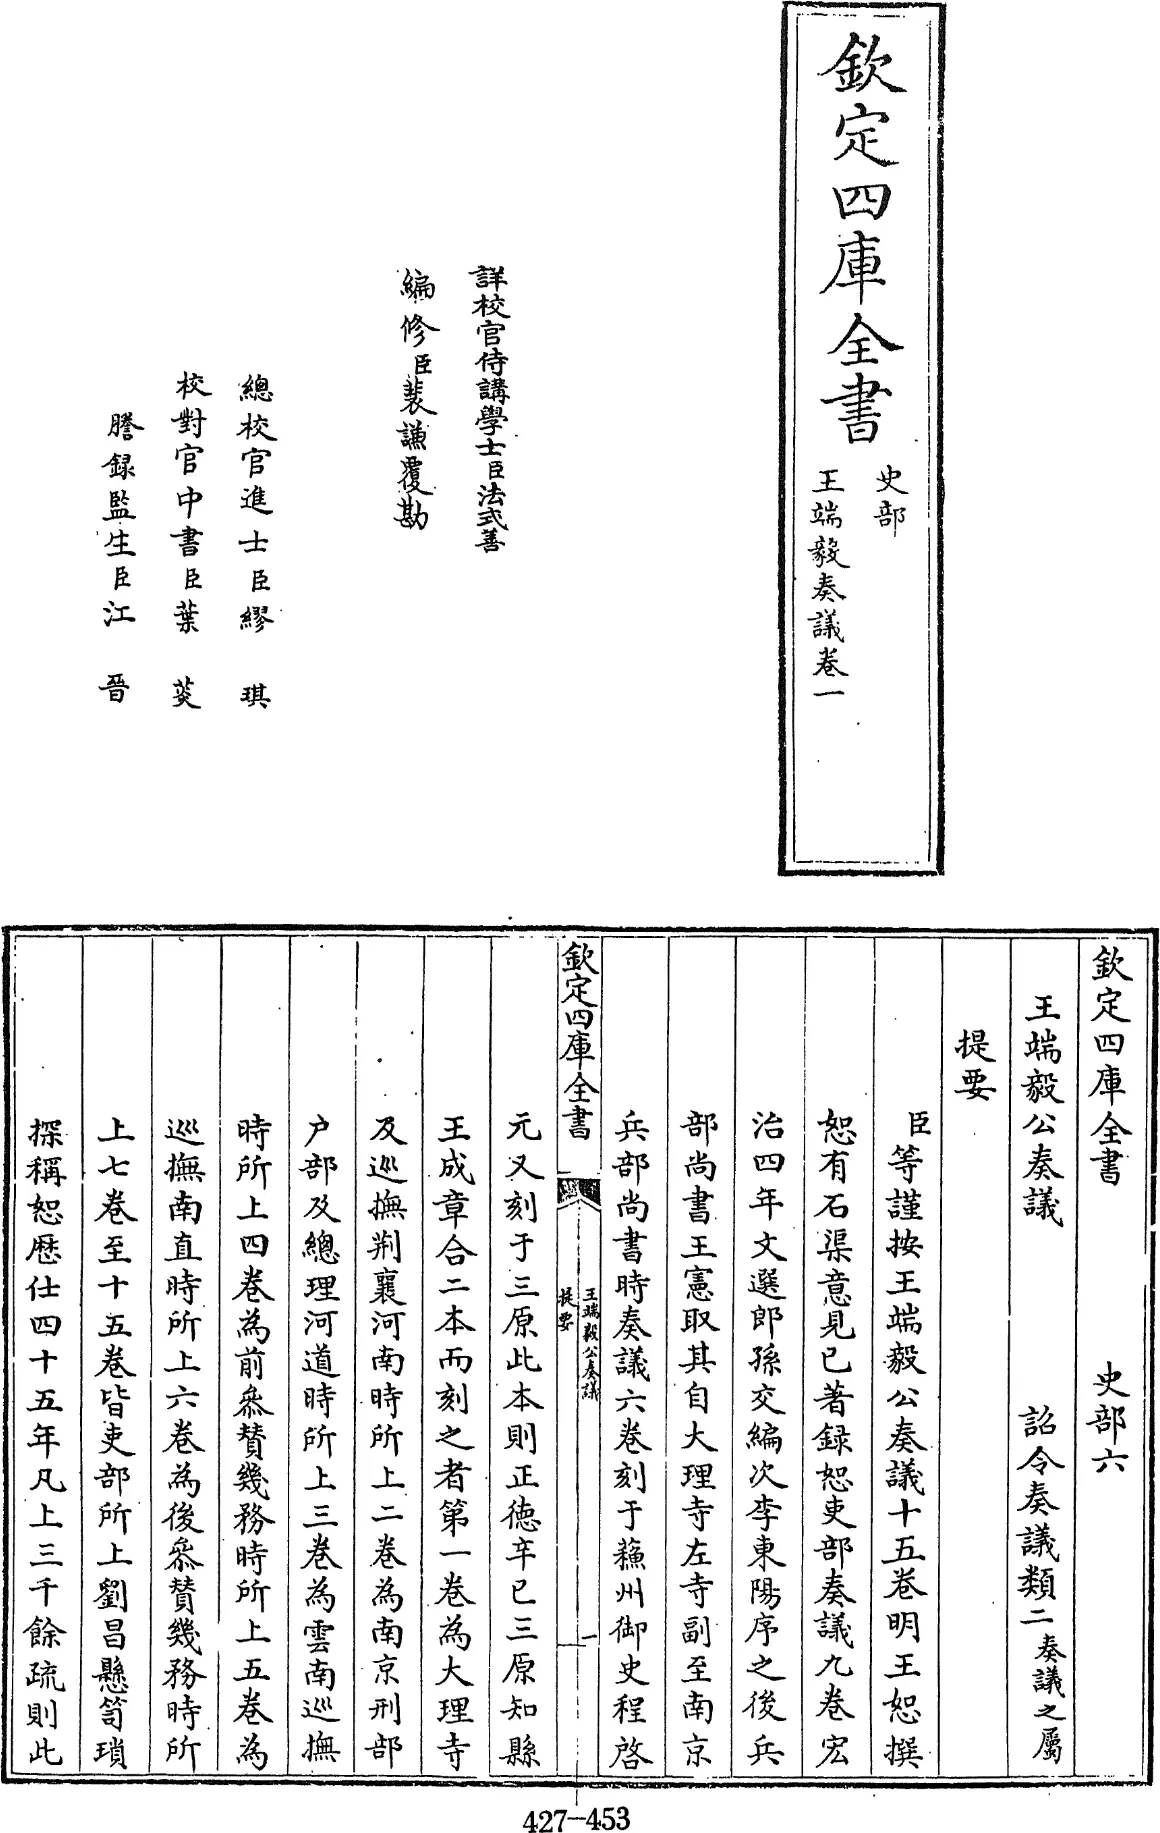 欽定四庫全書
史部
王端毅奏議卷一
詳校官侍講學士臣法式善
編修臣裴謙覆勘
總校官進士臣繆琪
校對官中書臣葉菼
謄録監生臣江晉
欽定四庫全書 史部六
王端毅公奏議 詔令奏議類二奏議之屬
提要
臣等謹按王端毅公奏議十五卷明王恕撰
恕有石渠意見已著録恕吏部奏議九卷宏
治四年文選郎孫交編次李東陽序之後兵
部尚書王憲取其自大理寺左寺副至南京
兵部尚書時奏議六卷刻于蘓州御史程啓
欽定四庫全書
王端毅公奏議
提要
一
元又刻于三原此本則正德辛巳三原知縣
王成章合二本而刻之者第一卷為大理寺
及巡撫荆襄河南時所上二卷為南京刑部
户部及總理河道時所上三卷為雲南巡撫
時所上四卷為前叅賛幾務時所上五卷為
巡撫南直時所上六卷為後叅賛幾務時所
上七卷至十五卷皆吏部所上劉昌懸笥瑣
探稱恕歴仕四十五年凡上三千餘疏則此
427-453